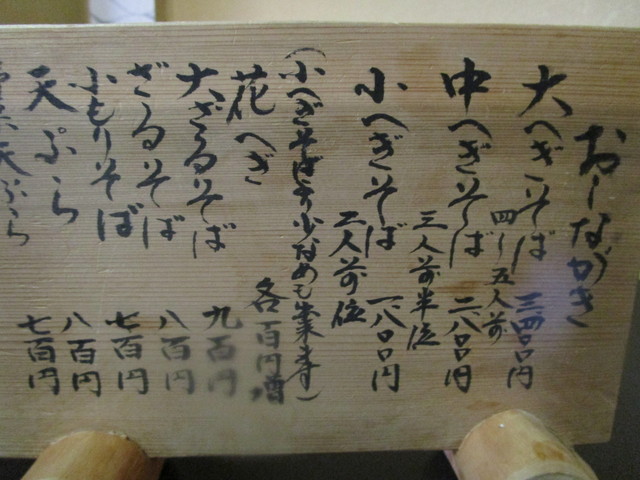 おしながき
大へぎそば 三四〇〇円
四〜五人前
中へぎそば 二八〇〇円
三人前半位
小へぎそば 一八〇〇円
二人前位
(小へぎそばより少なめも出来ます)
花へぎ 各百円増
大ざるそば 九百円
ざるそば 八百円
小もりそば 七百円
天ぷら 八百円
天ぷら 七百円